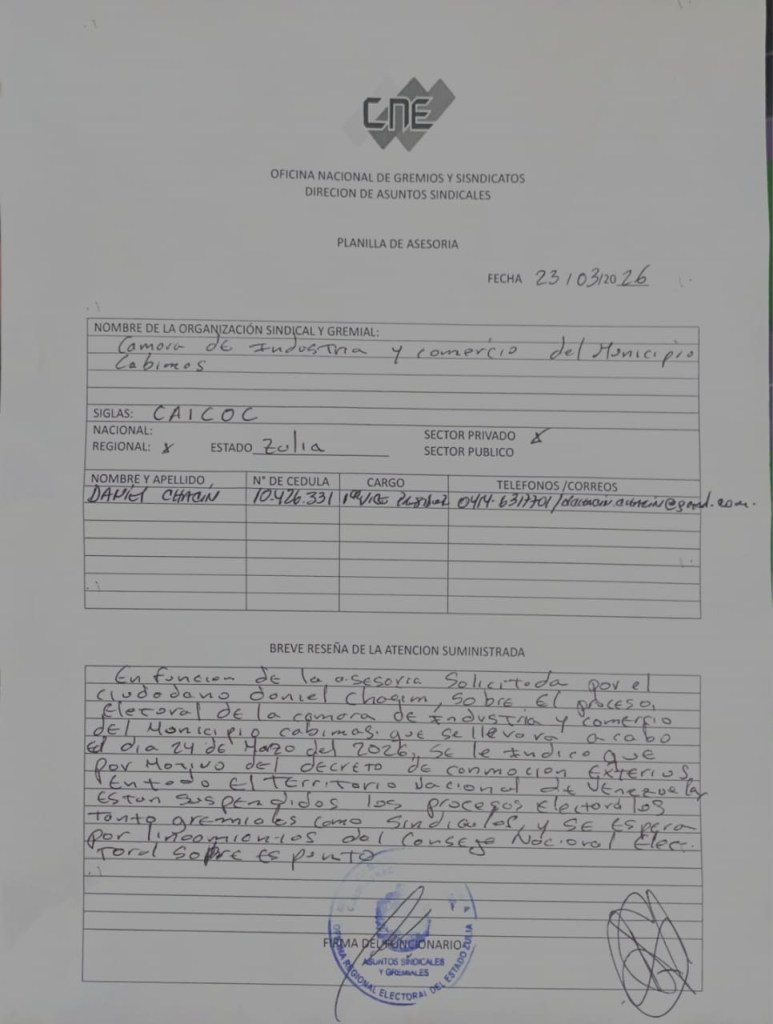 CNE
OFICINA NACIONAL DE GREMIOS Y SISNDICATOS
DIRECION DE ASUNTOS SINDICALES
PLANILLA DE ASESORIA
FECHA 23/03/2026
NOMBRE DE LA ORGANIZACIÓN SINDICAL Y GREMIAL:
Camara de Industria y comercio del Municipio
Cabimas
SIGLAS: CAICOC
NACIONAL:
SECTOR PRIVADO X
REGIONAL: X ESTADO Zulia
SECTOR PUBLICO
NOMBRE Y APELLIDO N° DE CEDULA CARGO TELEFONOS /CORREOS
DANIEL CHACIN 10.426.331 1er Vice 0414-6317701/
BREVE RESEÑA DE LA ATENCION SUMINISTRADA
En funcion de la asesoria Solicitada por el
ciudadano daniel Chacin, sobre El proceso
Eletoral de la camara de Industria y comercio
del Municipio cabimas que se llevara a cabo
El dia 24 de Marzo del 2026, se le Indico que
por Motivo del decreto de conmocion Exterior,
En todo El Territorio Nacional de Venezuela
Estan suspendidos los procesos Electorales
tanto gremiales como Sindicales, y se Espera
por lineamientos del Consejo Nacional Elec-
toral sobre Es punto
FIRMA DEL FUNCIONARIO
ASUNTOS SINDICALES
Y GREMIALES
OFICINA REGIONAL ELECTORAL DEL ESTADO ZULIA